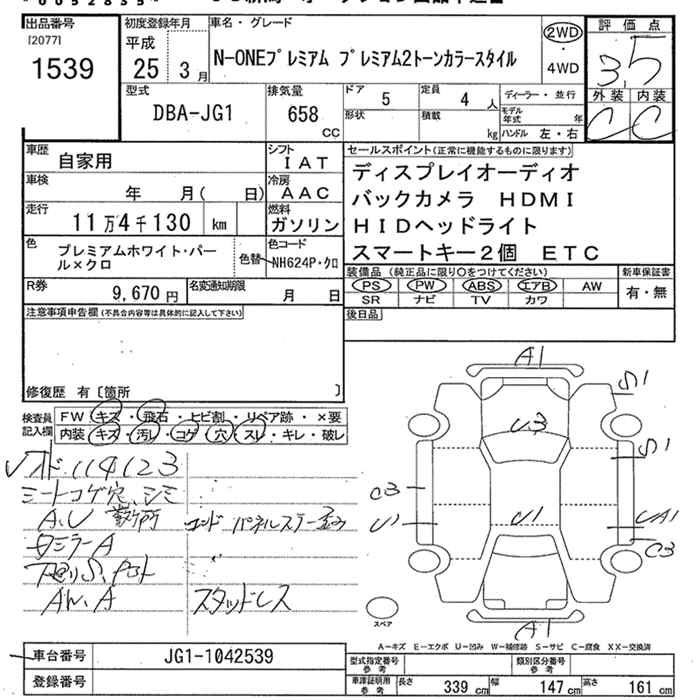 出品番号
[2077]
1539
初度登録年月
平成
25 3月
車名・グレード
N-ONEプレミアム プレミアム2トーンカラースタイル
2WD
4WD
評価点
3.5
外装 内装
C C
型式
DBA-JG1
排気量
658
CC
ドア 5
形状
定員 4人
積載 kg
ディーラー・並行
モデル年式 年
ハンドル 左・右
車歴
自家用
シフト
IAT
車検
年 月( 日)
冷房
AAC
走行
11万4千130 km
燃料
ガソリン
色
プレミアムホワイト・パール×クロ
色替
色コード
NH624P・クロ
R券
9,670円
名変通知期限
月 日
セールスポイント(正常に機能するものに限ります)
ディスプレイオーディオ
バックカメラ HDMI
HIDヘッドライト
スマートキー2個 ETC
装備品(純正品に限り○をつけてください)
PS PW ABS エアB AW
SR ナビ TV カワ
新車保証書
有・無
後日品
注意事項申告欄(不具合内容等は具体的に記入して下さい)
修復歴 有[箇所 ]
検査員記入欄
FW キズ・飛石・ヒビ割・リペア跡・×要
内装 キズ・汚レ・コゲ・穴・スレ・キレ・破レ
114123
シートコゲ穴、シミ
A,U
ミラーA
下廻りS,
AW,A
スタッドレス
A1
S1
U3
S1
C3
U1
U1
UA1
C3
A1
スペア
A－キズ E－エクボ U－凹み W－補修跡 S－サビ C－腐食 XX－交換済
車台番号
JG1-1042539
登録番号
型式指定番号 参考
類別区分番号 参考
車庫証明用 参考
長さ 339 cm
幅 147 cm
高さ 161 cm